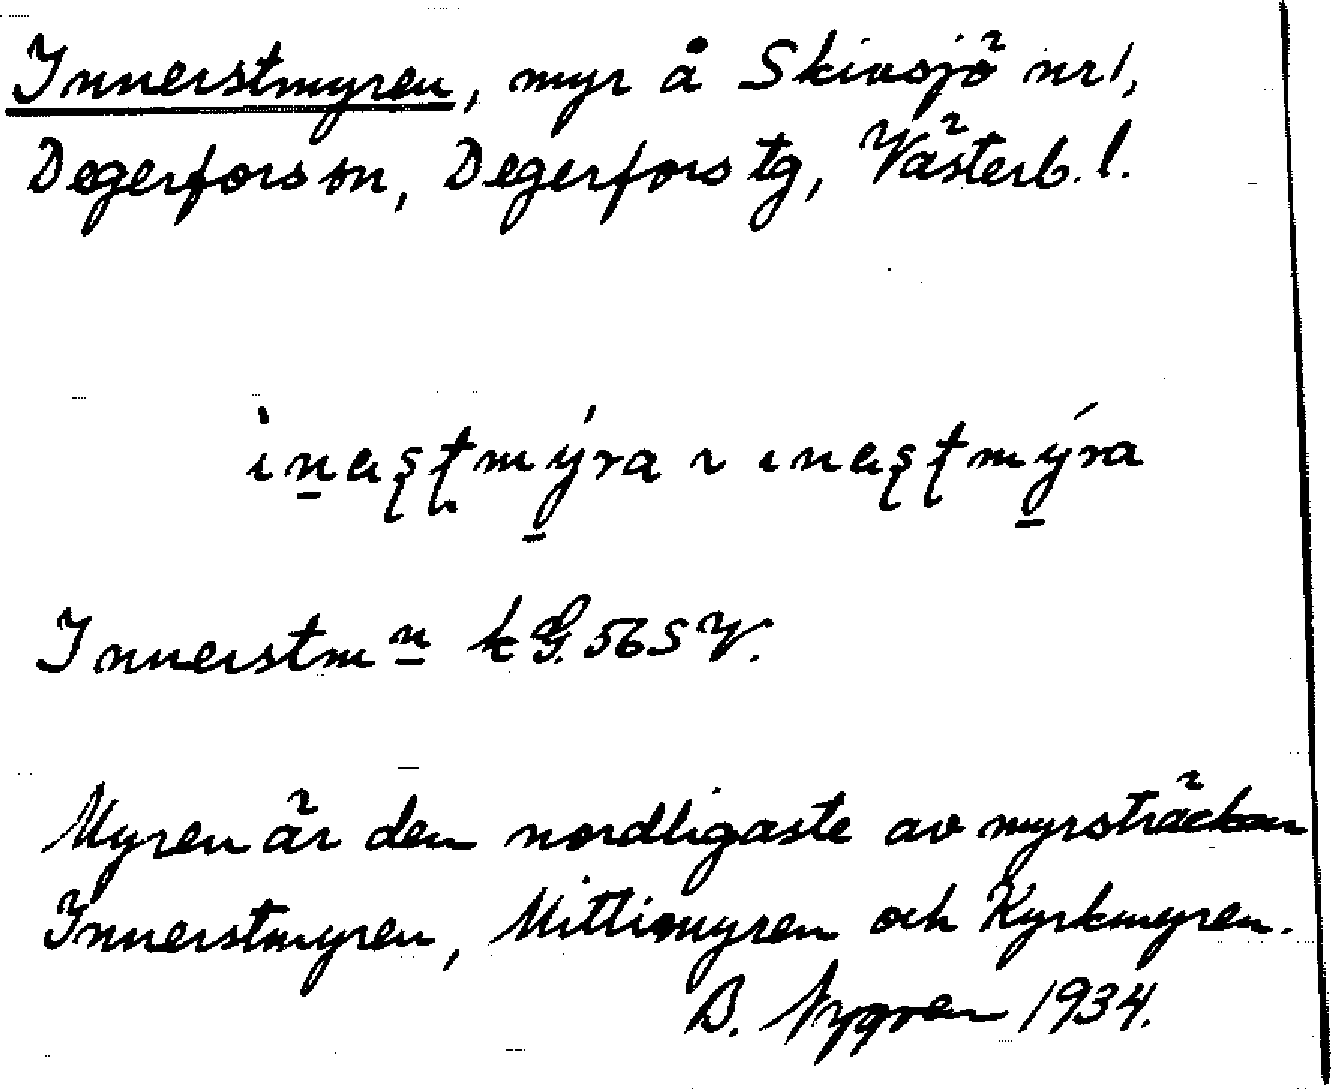 Innerstmyren, myr å Skivsjö nr 1,
Degerfors sn, Degerfors tg, Västerb. l.
ìn̲aşţmý̲ra ~ ınaşţmý̲ra
Innerstm n̲ k G. 56 S V.
Myren är den nordligaste av myrsträckan
Innerstmyren, Mittimyren och Kyrkmyren.
B. Nygren 1934.